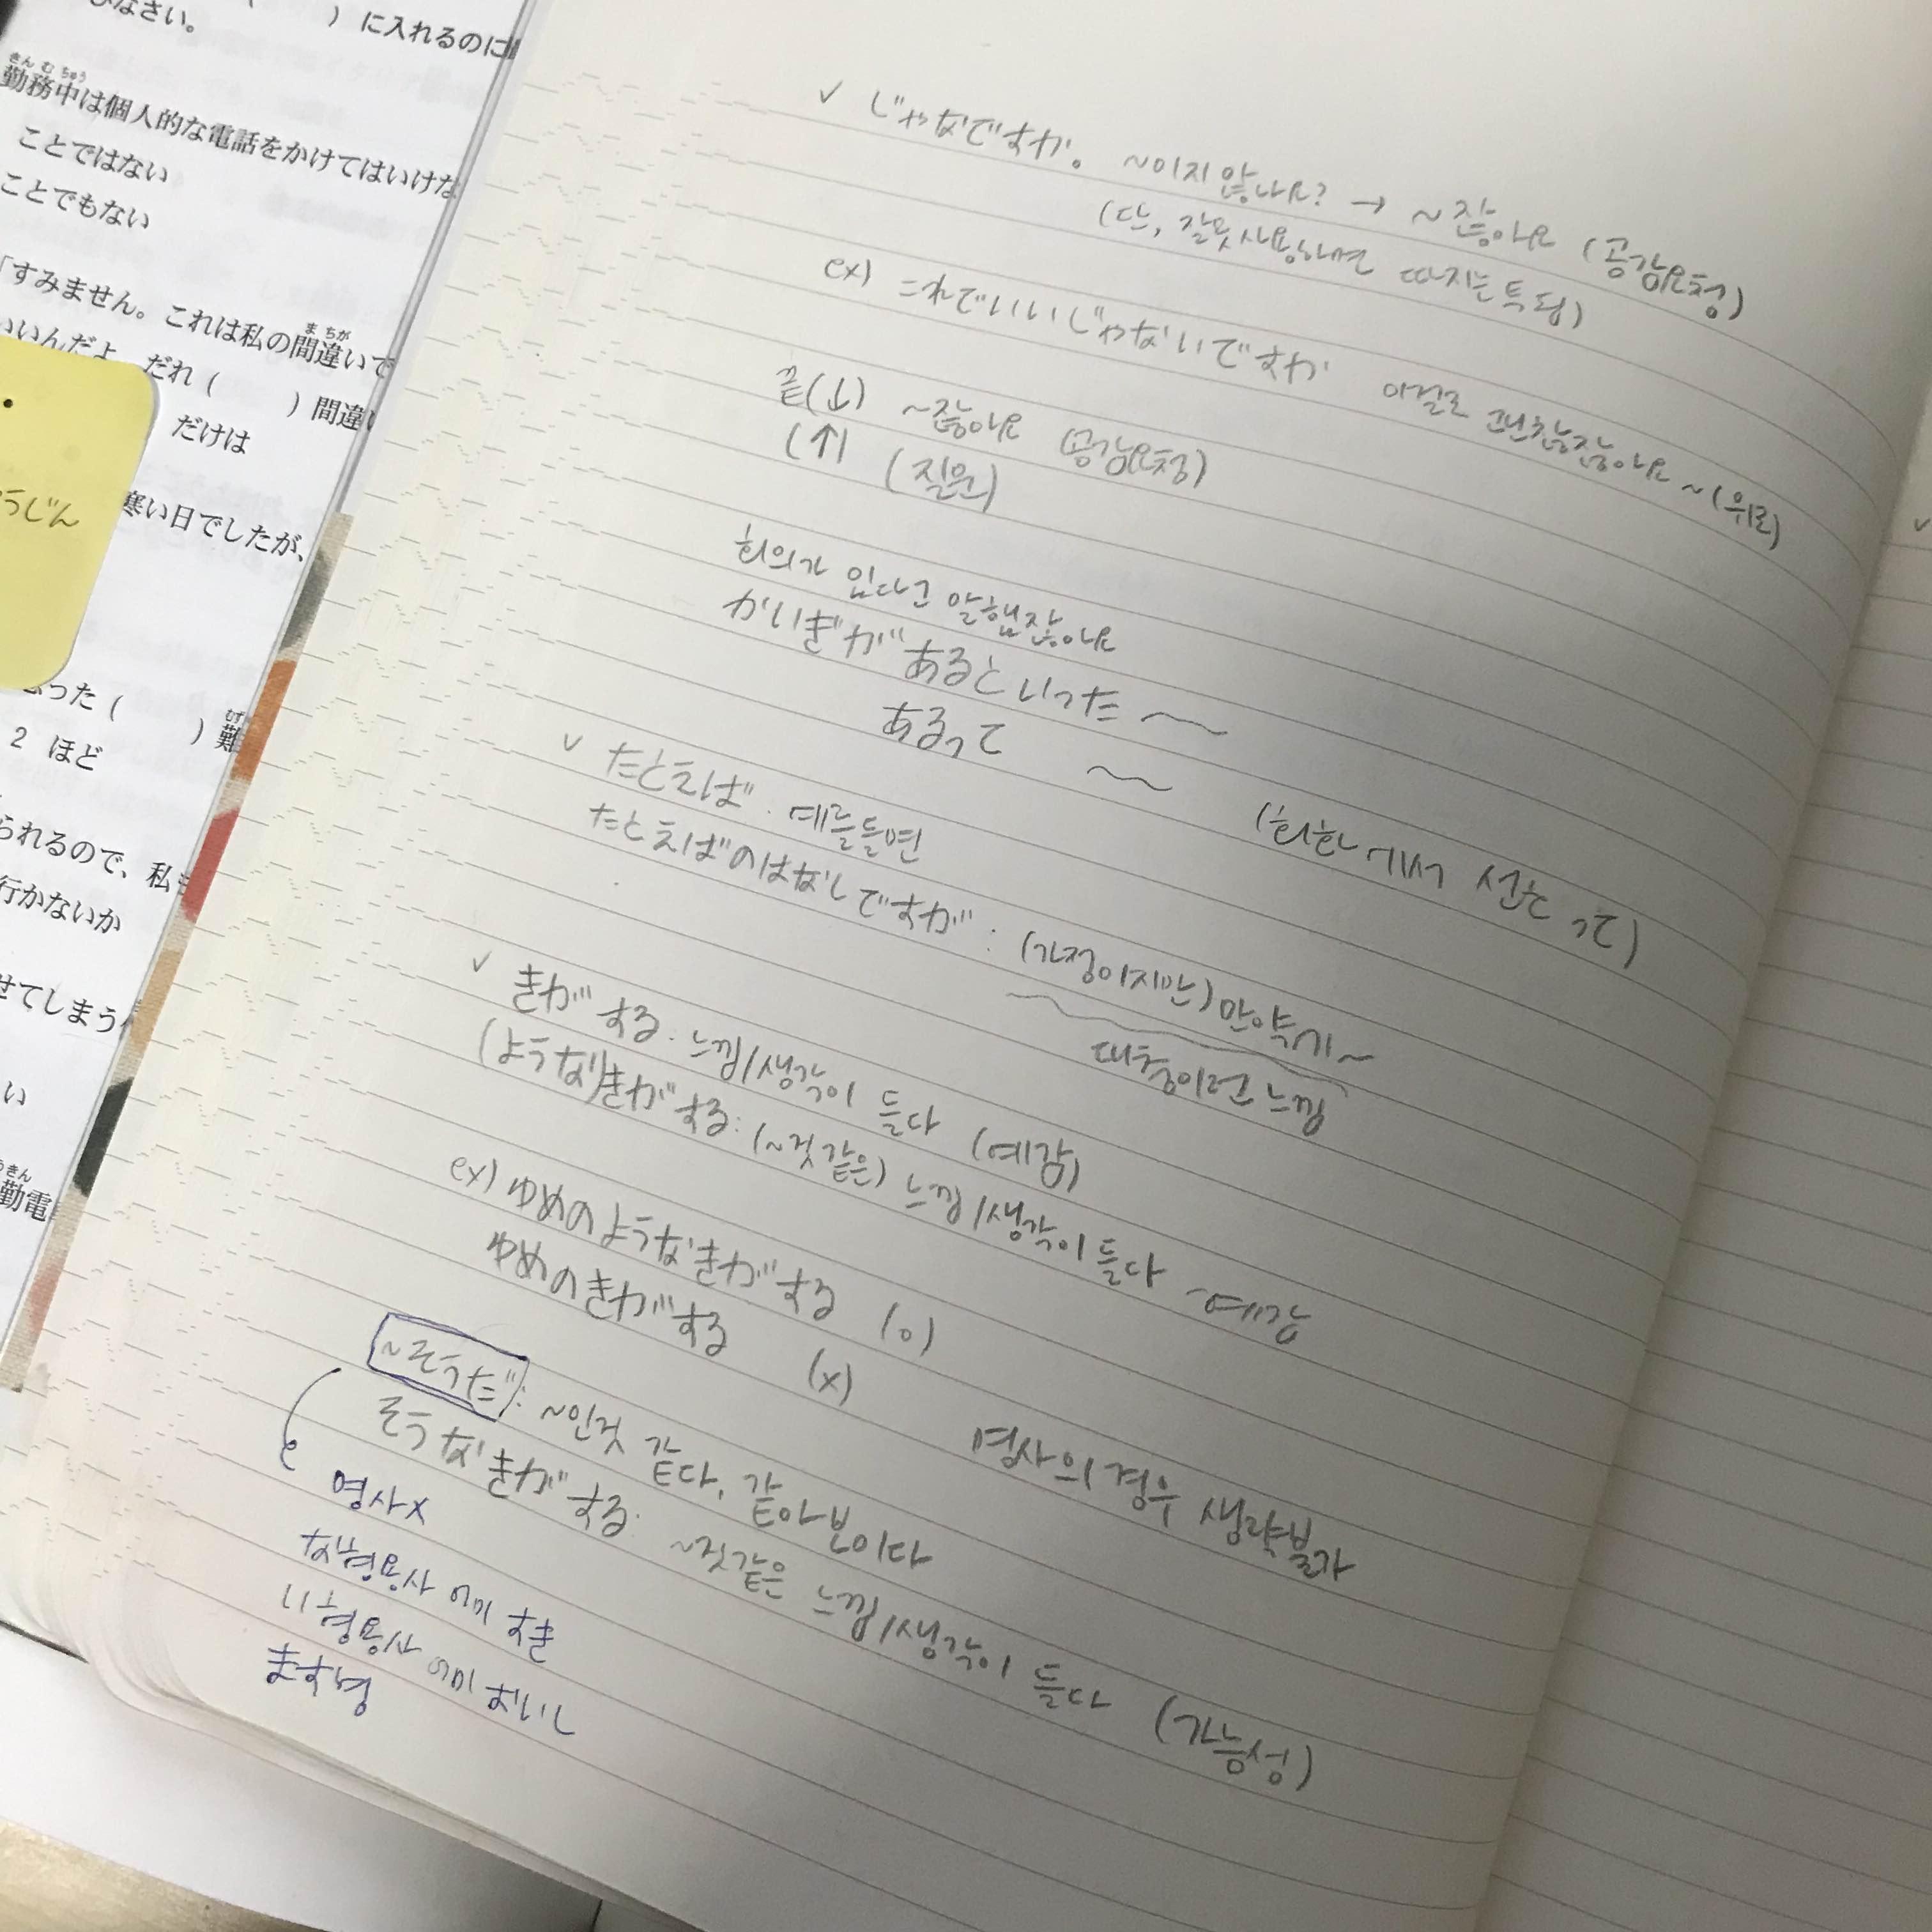 びなさい。
( ) に入れるのに
きん む ちゅう
勤務中は個人的な電話をかけてはいけな
ことではない
ことでもない
「すみません。これは私の間違いで
まちが
いいんだよ だれ ( ) 間違い
だけは
うじん
寒い日でしたが、
思った ( ) 難
むずか
2 ほど
られるので、私も
行かないか
せてしまう
い
うきん
勤電
✓ じゃなですか。 ~이지 않나요? → ~잖아요 (공감요청)
(단, 잘못사용하면 따지는 특됨)
ex) これでいいじゃないですか 이걸로 괜찮잖아요~(위로)
끝(↓) ~잖아요 (공감요청)
(↑) (질문)
회의가 있다고 말했잖아요
かいぎがあるといった ~
あるって ~ (회화에서 선호 って)
✓ たとえば : 예를들면
たとえばのはなしですが : (가정이지만) 만약가~
대충이런느낌
✓ きがする : 느낌/생각이 들다 (예감)
(ような)きがする : (~것 같은) 느낌/생각이 들다 -예감
ex) ゆめのようなきがする (o)
ゆめのきがする (x) 명사의 경우 생략불가
~そうだ : ~인것 같다, 같아보이다
そうなきがする : ~것같은 느낌/생각이 들다 (가능성)
명사x
な형용사 어미 すき
い형용사 어미 おいし
ます형